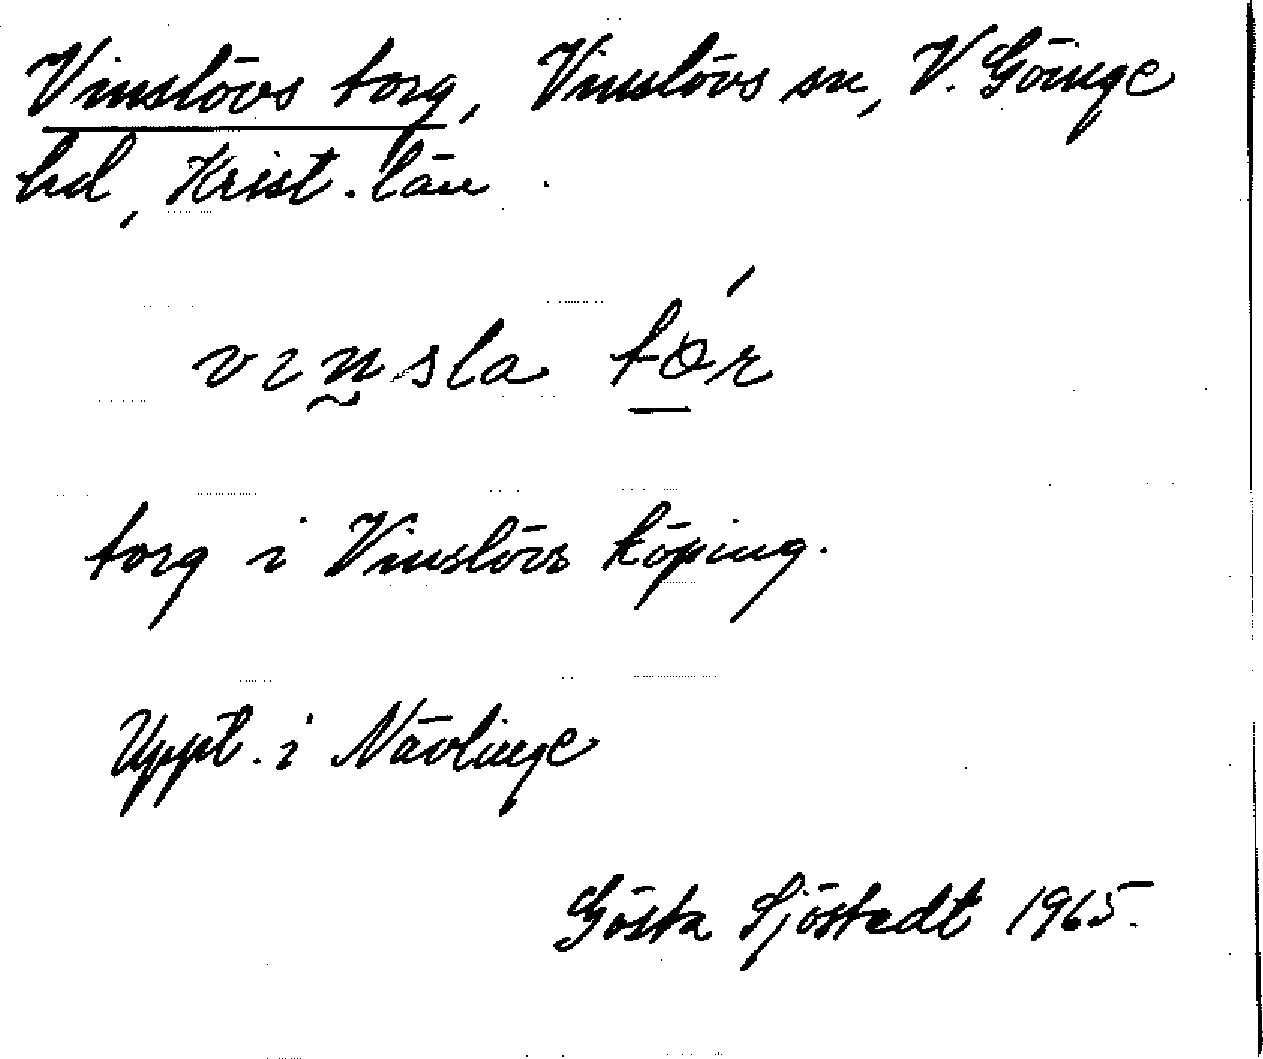 Vinslövs torg, Vinslövs sn, V. Göinge
hd, Krist. län.
torg i Vinslövs köping.
Uppt. i Nävlinge
Gösta Sjöstedt 1965.